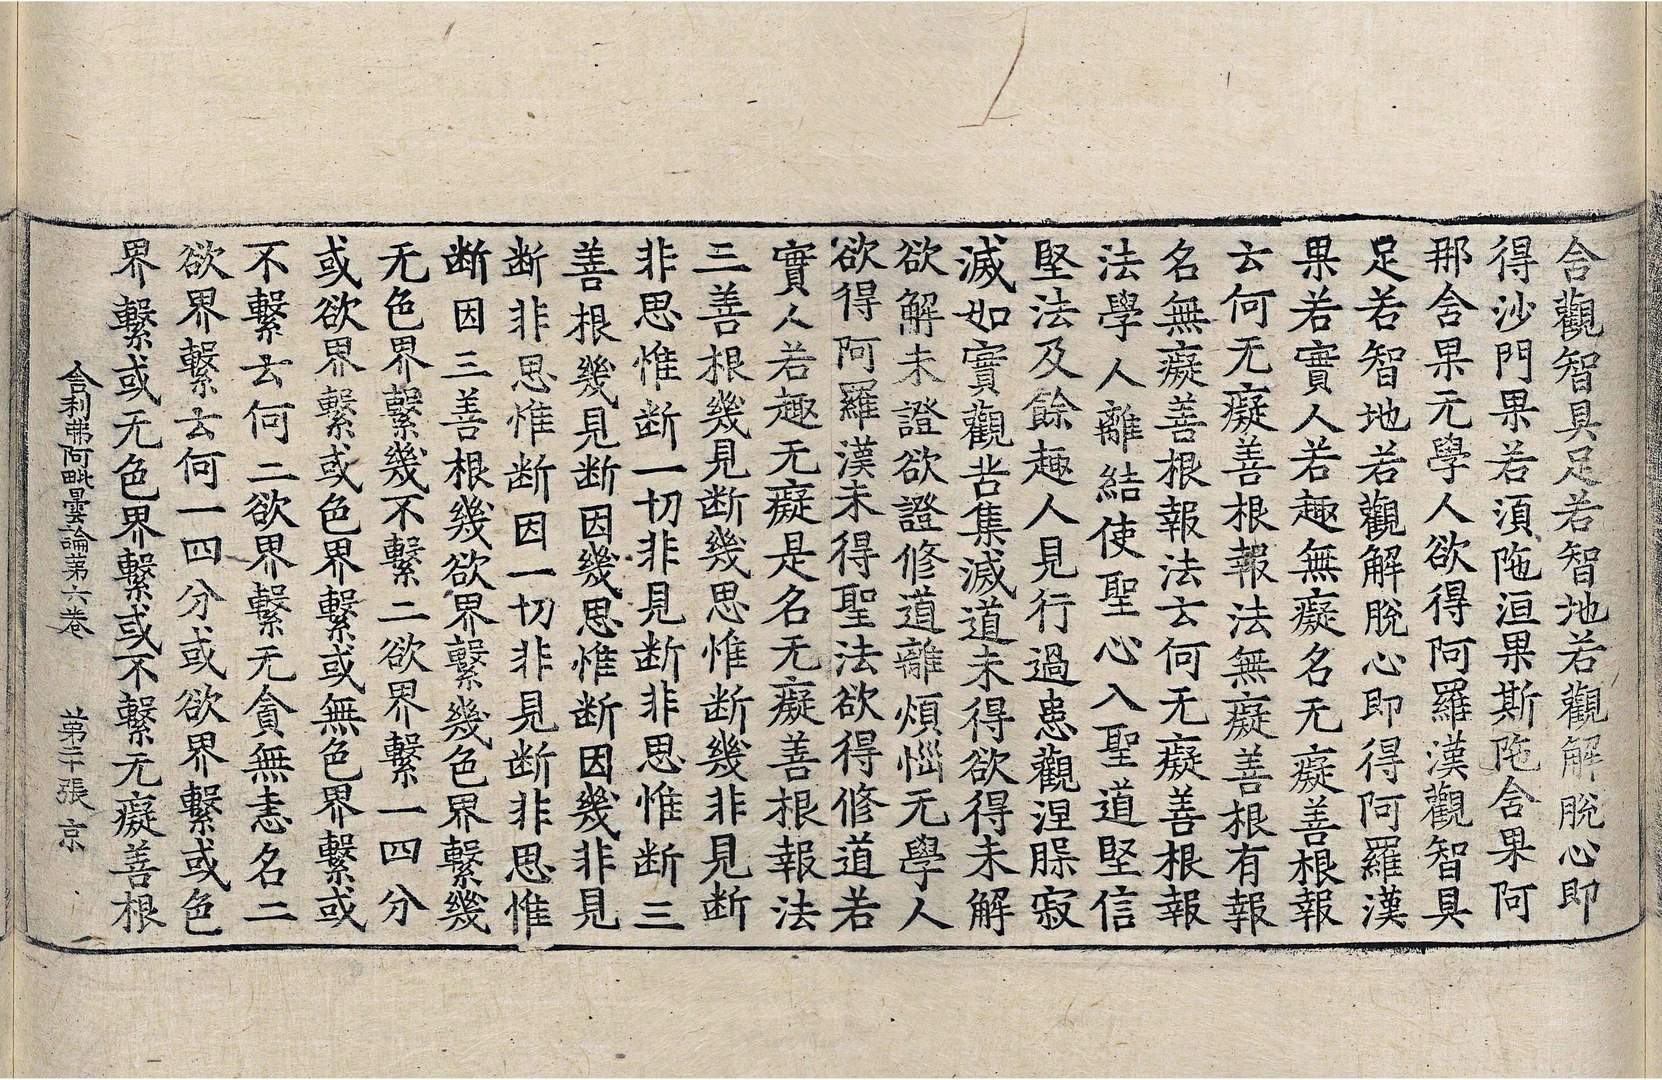 合觀智具足若智地若觀解脫心即
得沙門果若湏陁洹果斯陁含果阿
那含果无學人欲得阿羅漢觀智具
足若智地若觀解脫心即得阿羅漢
果若實人若趣無癡名无癡善根報
云何无癡善根報法無癡善根有報
名無癡善根報法云何无癡善根報
法學人離結使聖心入聖道堅信
堅法及餘趣人見行過患觀涅槃寂
滅如實觀苦集滅道未得欲得未解
欲解未證欲證修道離煩惱无學人
欲得阿羅漢未得聖法欲得修道若
實人若趣无癡是名无癡善根報法
三善根幾見断幾思惟断幾非見断
非思惟断一切非見断非思惟断三
善根幾見断因幾思惟断因幾非見
断非思惟断因一切非見断非思惟
断因三善根幾欲界繫幾色界繫幾
无色界繫幾不繫二欲界繫一四分
或欲界繫或色界繫或無色界繫或
不繫云何二欲界繫无貪無恚名二
欲界繫云何一四分或欲界繫或色
界繫或无色界繫或不繫无癡善根
舎利弗阿毗曇論苐六卷 苐二十張 京